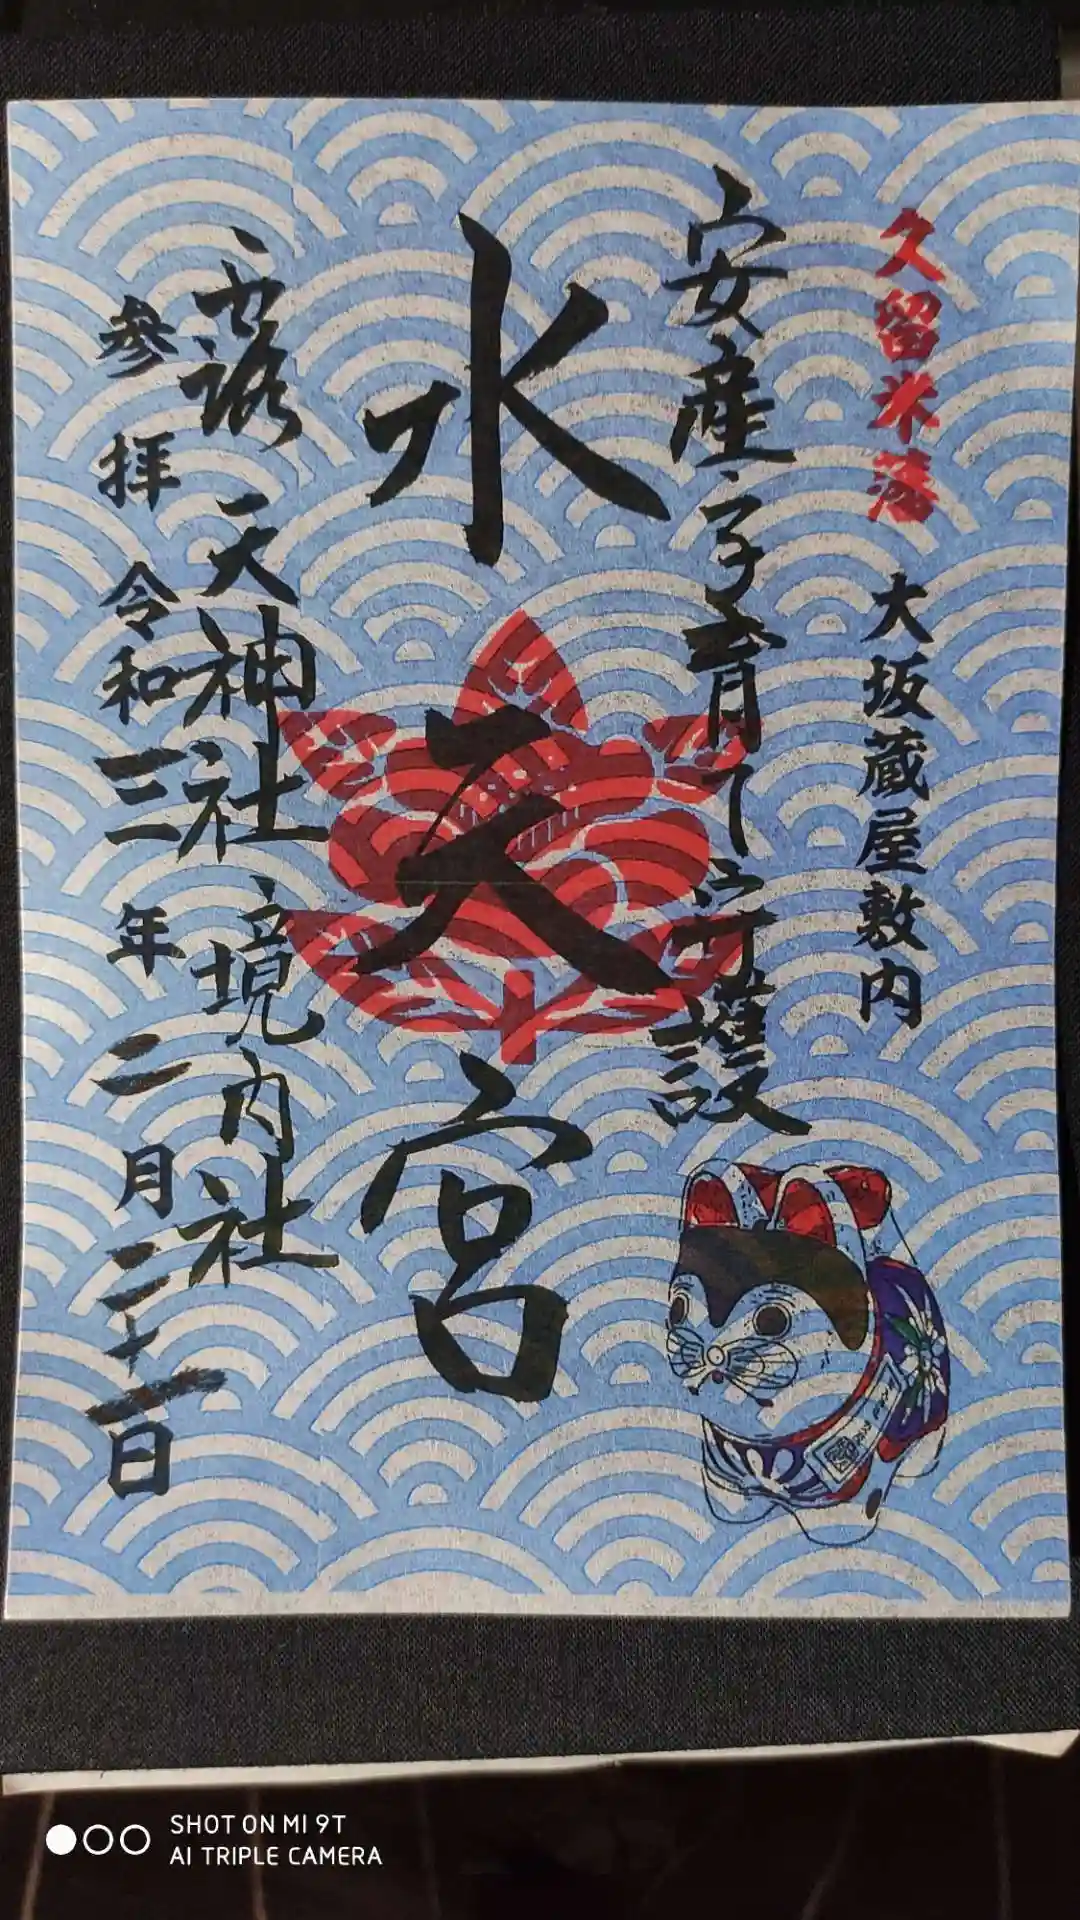 久留米藩 大坂蔵屋敷内
安産子育て守護
水天宮
露 天神社 境内社
参拝 令和三年二月二十二日
SHOT ON MI 9T
AI TRIPLE CAMERA